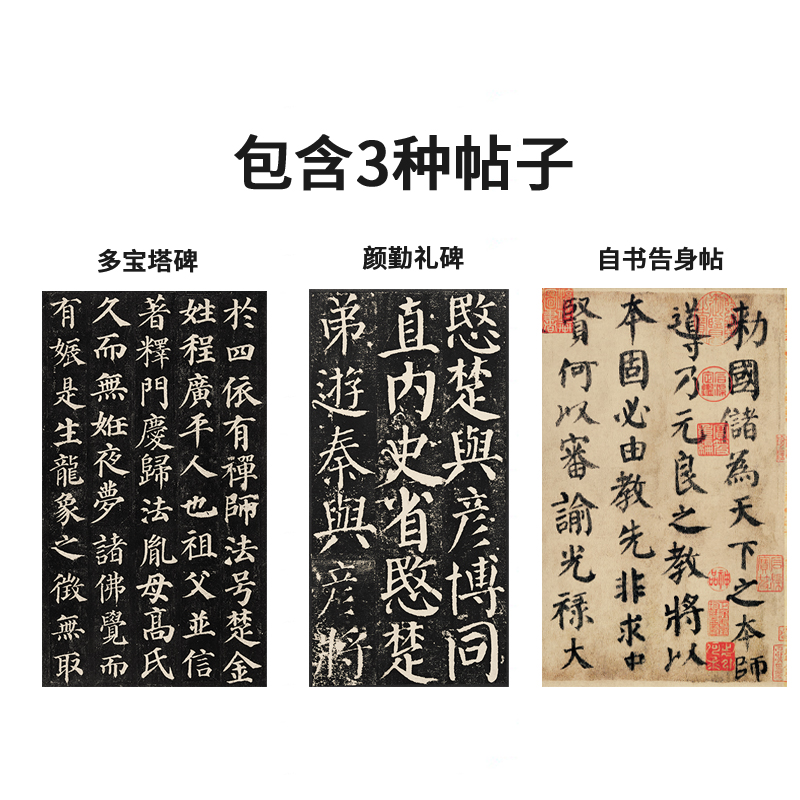 包含3种帖子
多宝塔碑
颜勤礼碑
自书告身帖
於四依有禪師法号楚金
姓程廣平人也祖父並信
著釋門慶歸法胤母高氏
久而無姙夜夢諸佛覺而
有娠是生龍象之徵無取
愍楚與彦博同
直内史省愍楚
弟遊秦與彦將
勑國儲為天下之本師
導乃元良之教將以
本固必由教先非求中
賢何以審諭光祿大